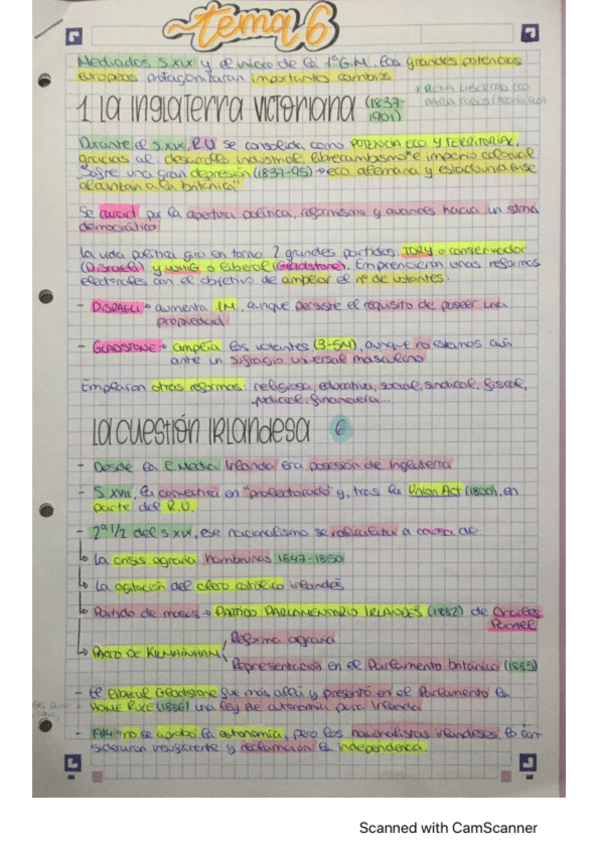 tema 6
Mediados S.XIX y el inicio de la 1ª G.M. las grandes potencias
europeas protagonizaran importantes cambios
1. La Inglaterra Victoriana (1837-
1901)
Durante el S.XIX, R.U. se consolida como POTENCIA ECO. Y TERRITORIAL,
gracias al desarrollo industrial, librecambismo* e imperio colonial
Sufre una gran depresión (1837-95) → eco. alemana y estadounidense
adelantan a la británica
Se caract. por la apertura política, reformismo y avances hacia un stma
democrático
La vida política gira en torno 2 grandes partidos: TORY o conservador
(Disraeli) y WHIG o liberal (Gladstone). Emprendieron unas reformas
electorales con el objetivo de ampliar el nº de votantes:
- DISRAELI → aumenta 1M, aunque persiste el requisito de poseer una
propiedad
- GLADSTONE → amplía los votantes (3-5M), aunque no estemos aún
ante un sufragio universal masculino
Emplearon otras reformas: religiosa, educativa, social, sindical, fiscal,
judicial, financiera...
La cuestión Irlandesa 6
- Desde la E. Media, Irlanda era posesión de Inglaterra
- S.XVII, la convertirá en "protectorado" y, tras la Union Act (1800), en
parte del R.U.
- 2ª 1/2 del S.XIX, ese nacionalismo se radicaliza a causa de
La crisis agraria: hambrunas 1847-1850
La agitación del clero católico irlandés
Partido de masas → PARTIDO PARLAMENTARIO IRLANDÉS (1882) de Charles
PACTO DE KILMAINHAM
Reforma agraria
Representación en el Parlamento británico (1885)
- El liberal Gladstone fue más allá y presentó en el Parlamento la
HOME RULE (1886) una ley de autonomía para Irlanda
- 1914 → no se aprobó la autonomía, pero los nacionalistas irlandeses, lo con-
sideraron insuficiente y reclamaron la independencia.
Scanned with CamScanner